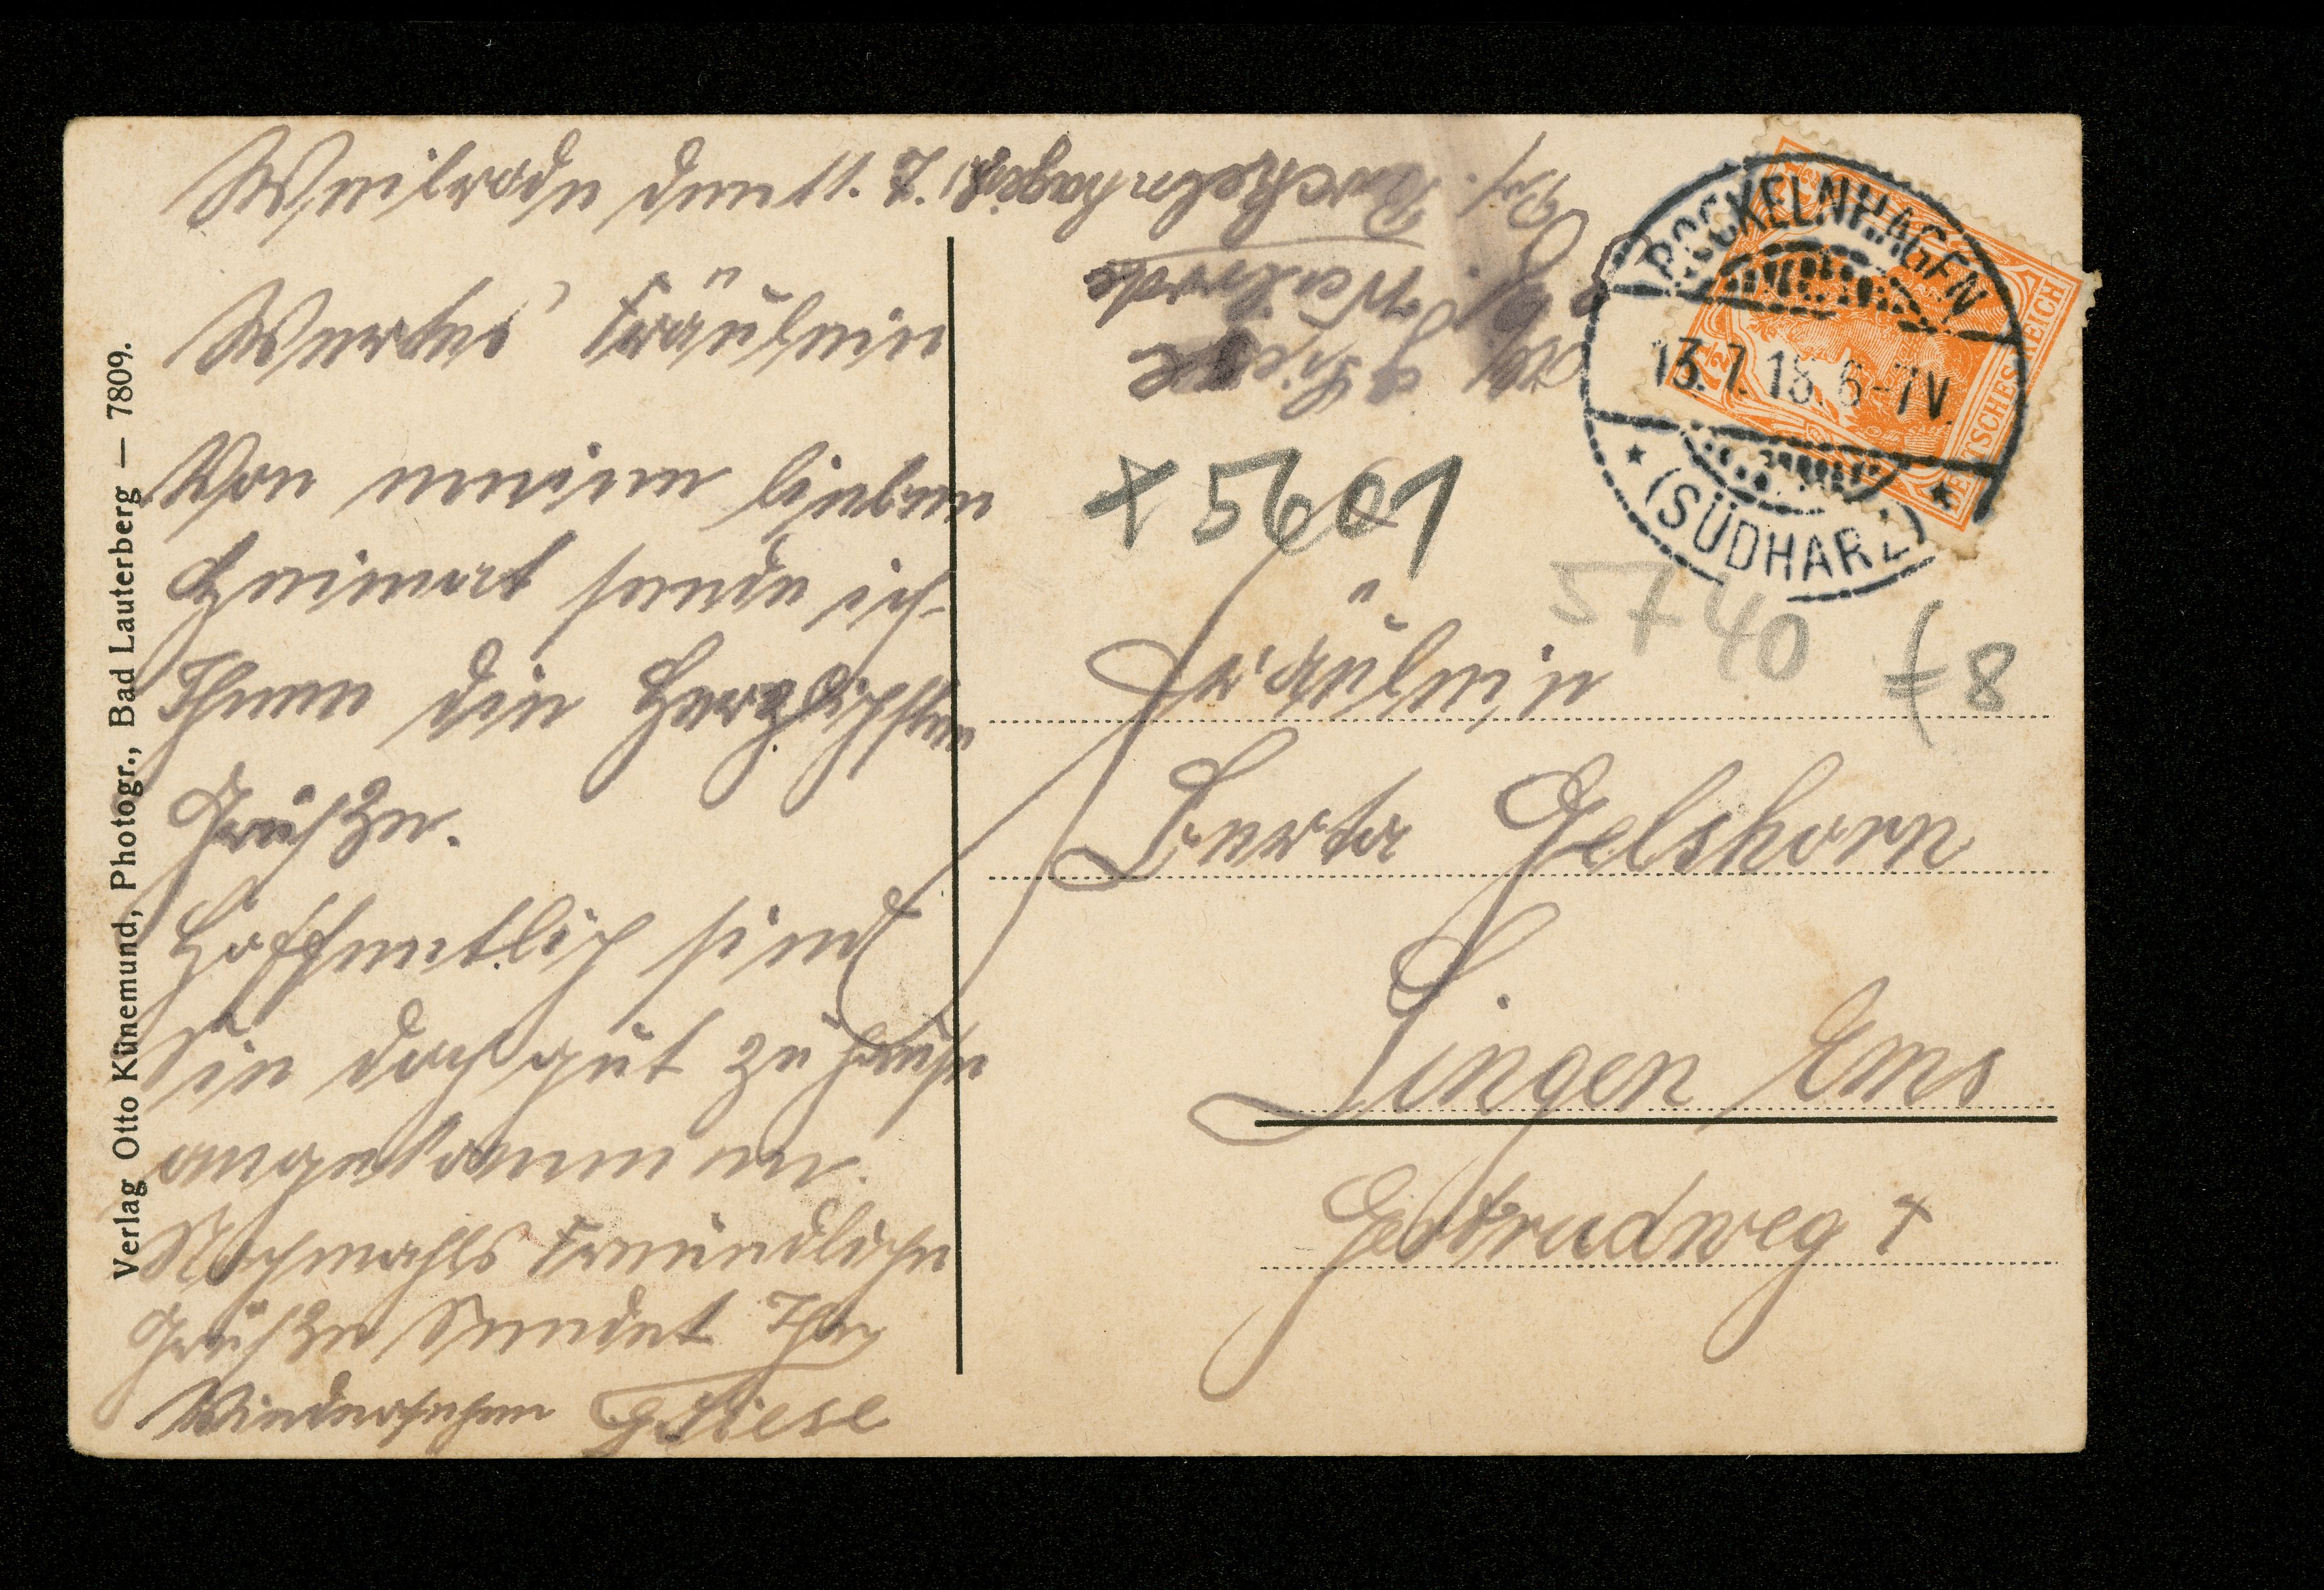 Weilrode den 11. 7. 18
Wertes Fräulein
Von meinem lieben
Heimat sende ich
Ihnen die Herzlichsten
Grüße.
Hoffentlich sind
Sie doch gut zu hause
angekommen.
Nochmahls Freundliche
Grüße Sendet Ihr
Wiedersehen G Liese
Verlag Otto Künemund, Photogr., Bad Lauterberg — 7809.
Pockelnhagen
Weilrode
G Liese
POCKELNHAGEN
13.7.18. 6-7V.
* (SÜDHARZ) *
DEUTSCHES REICH
7½
+ 5601
5740
£8
Fräulein
Berta Gelshorn
Lingen Ems
Gertrudweg +